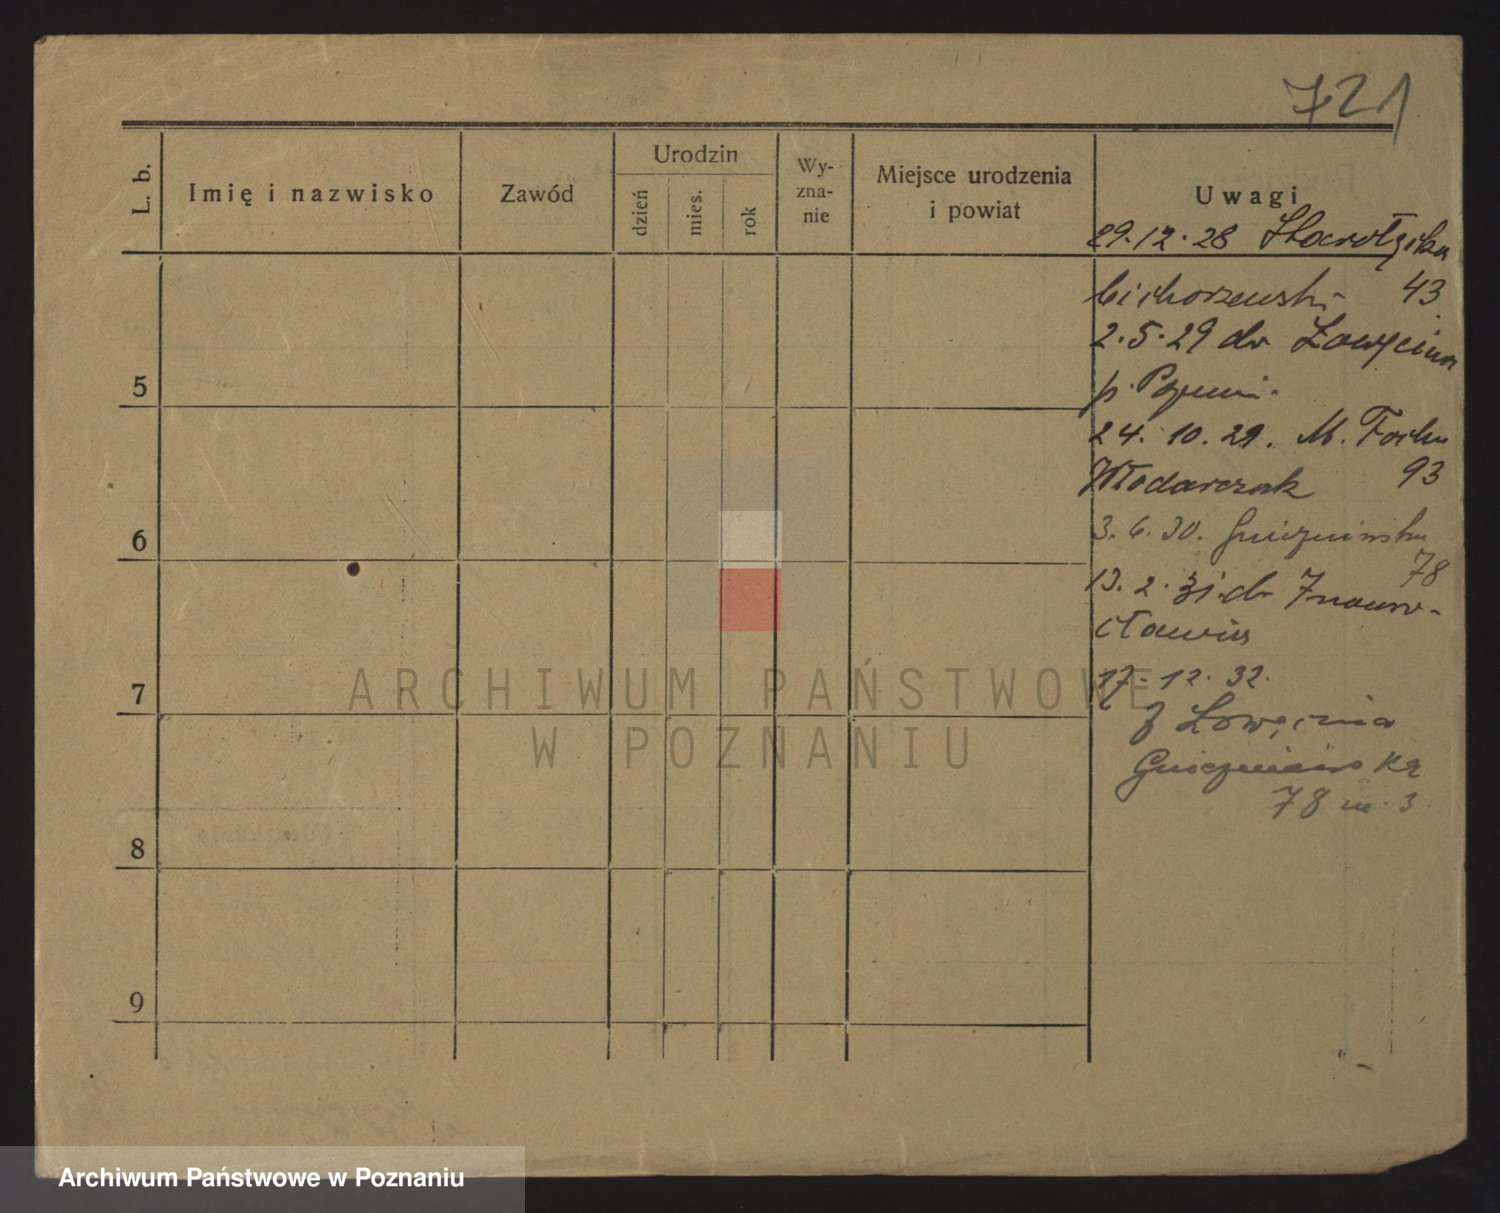 721
L. b.
Imię i nazwisko
Zawód
Urodzin
dzień
mies.
rok
Wy-
zna-
nie
Miejsce urodzenia
i powiat
Uwagi
29.12.28
43
2.5.29 do
p.
5
24.10.29. M. Focha
Włodarczak 93
3.6.30. Gnieźnieńska
78
6
13.2.31 do Inowro-
cławia
17.12.32.
z Łowęcina
Gnieźnieńska
78 m. 3.
7
8
9
ARCHIWUM PAŃSTWOWE
W POZNANIU
Archiwum Państwowe w Poznaniu